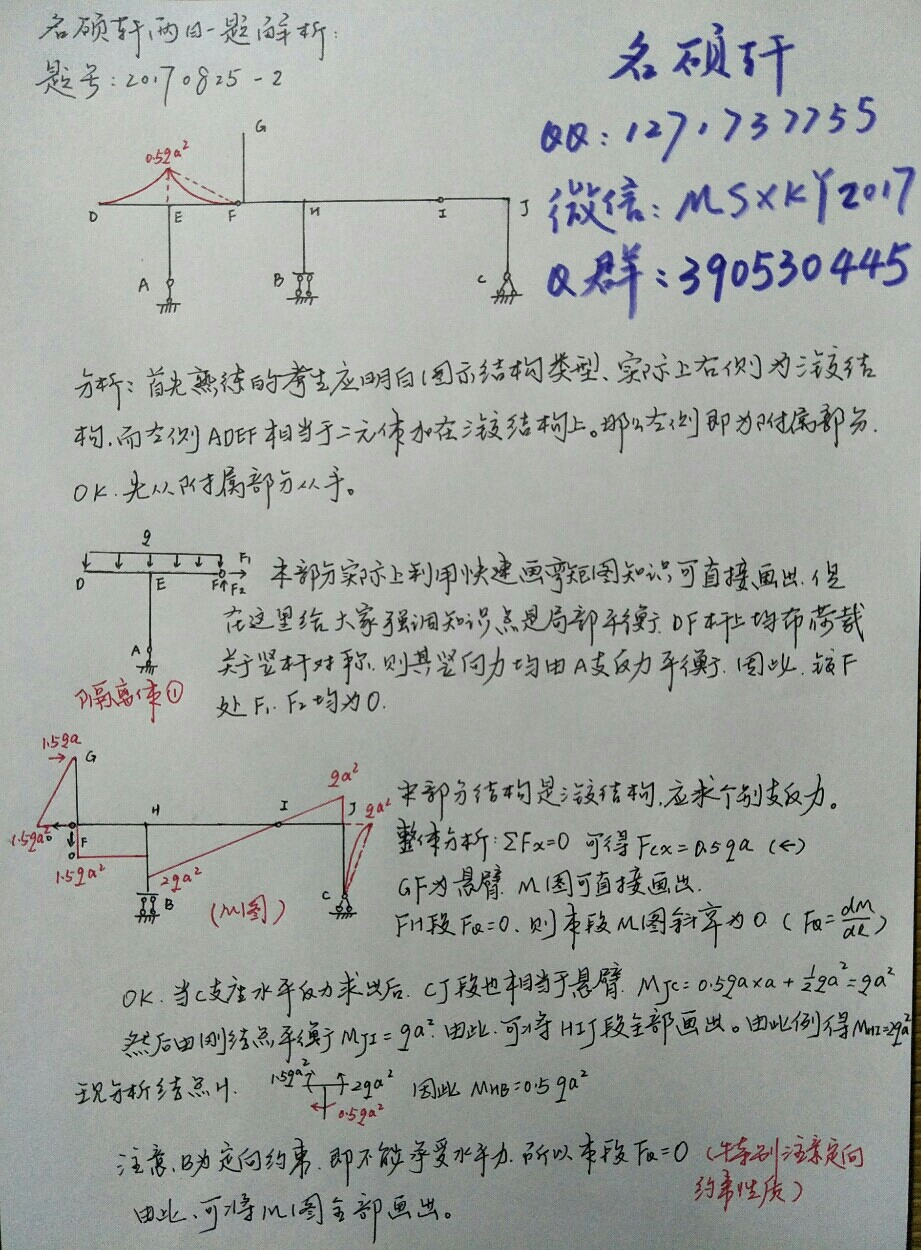 名硕轩两日一题解析:
题号:20170825-2
名硕轩
QQ:1271737755
微信:MSXKY2017
Q群:390530445
G
0.5qa²
D E F H I J
A B C
分析:首先熟练的考生应明白图示结构类型、实际上右侧为三铰结
构,而左侧ADEF相当于二元体加在三铰结构上。那么左侧即为附属部分.
OK.先从附属部分从手。
q
D E F F₁
F₂
A
隔离体①
本部分实际上利用快速画弯矩图知识可直接画出.但
在这里给大家强调知识点是局部平衡.DF杆上均布荷载
关于竖杆对称.则其竖向力均由A支反力平衡.因此.铰F
处F₁.F₂均为0.
1.5qa
G
qa²
H I J qa²
1.5qa²
F
1.5qa² 2qa²
B C
(M图)
本部分结构是三铰结构,应求个别支反力。
整体分析:ΣFx=0 可得Fcx=0.5qa (←)
GF为悬臂.M图可直接画出.
FH段FQ=0.则本段M图斜率为0 (FQ=dM/dx)
OK.当C支座水平反力求出后.CJ段也相当于悬臂.MJC=0.5qa×a+½qa²=qa²
然后由刚结点平衡MJI=qa².由此.可将HIJ段全部画出。由比例得MHI=2qa²
现分析结点H. 1.5qa² 2qa² 因此MHB=0.5qa²
0.5qa²
注意.B为定向约束.即不能承受水平力.所以本段FQ=0 (特别注意定向
约束性质)
由此、可将M图全部画出。